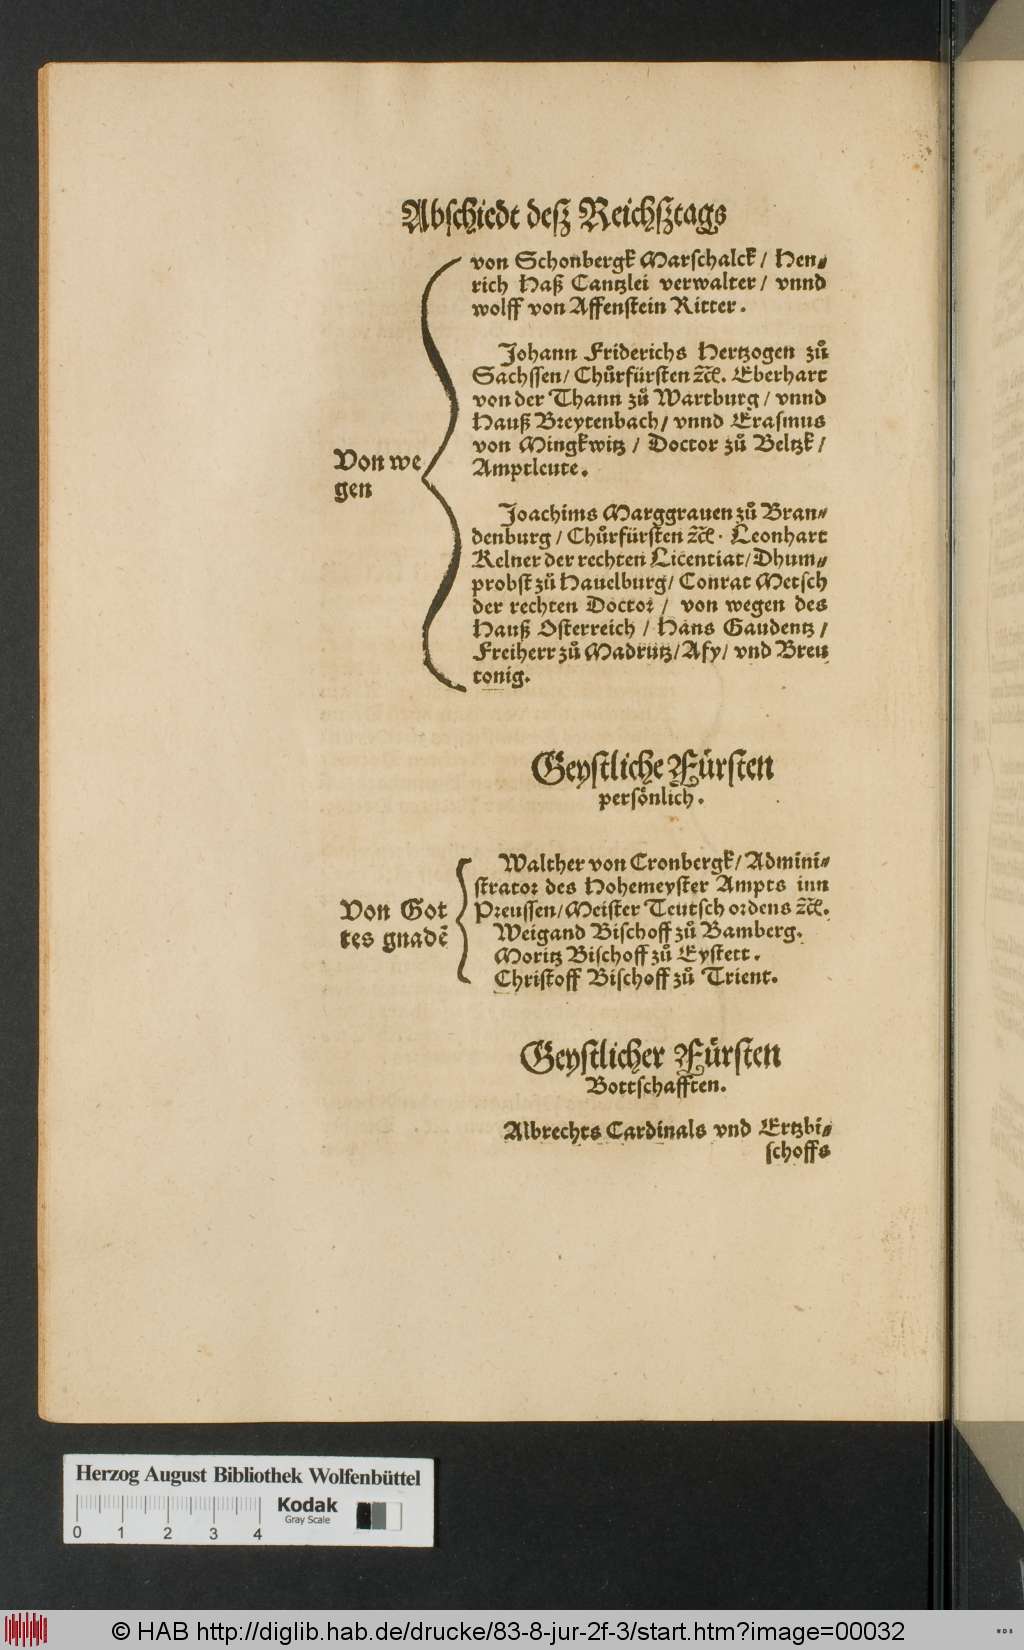 Abschiedt desz Reichsztags
von Schonbergk Marschalck / Hen⸗
rich Haß Cantzlei verwalter / vnnd
wolff von Affenstein Ritter.
Johann Friderichs Hertzogen zů
Sachssen / Chůrfürsten ꝛc̃. Eberhart
von der Thann zů Wartburg / vnnd
Hauß Breytenbach / vnnd Erasmus
von Mingkwitz / Doctor zů Beltzk /
Amptleute.
Von we
gen
Joachims Marggrauen zů Bran⸗
denburg / Chůrfürsten ꝛc̃. Leonhart
Kelner der rechten Licentiat / Dhum⸗
probst zů Hauelburg / Conrat Metsch
der rechten Doctor / von wegen des
Hauß Osterreich / Hans Gaudentz /
Freiherr zů Madrutz / Asy / vnd Breu
tonig.
Geystliche Fürsten
persönlich.
Von Got
tes gnadẽ
Walther von Cronbergk / Admini⸗
strator des Hohemeyster Ampts inn
Preussen / Meister Teutsch ordens ꝛc̃.
Weigand Bischoff zů Bamberg.
Moritz Bischoff zů Eystett.
Christoff Bischoff zů Trient.
Geystlicher Fürsten
Bottschafften.
Albrechts Cardinals vnd Ertzbi⸗
schoffs
Herzog August Bibliothek Wolfenbüttel
Kodak
Gray Scale
0 1 2 3 4
© HAB http://diglib.hab.de/drucke/83-8-jur-2f-3/start.htm?image=00032